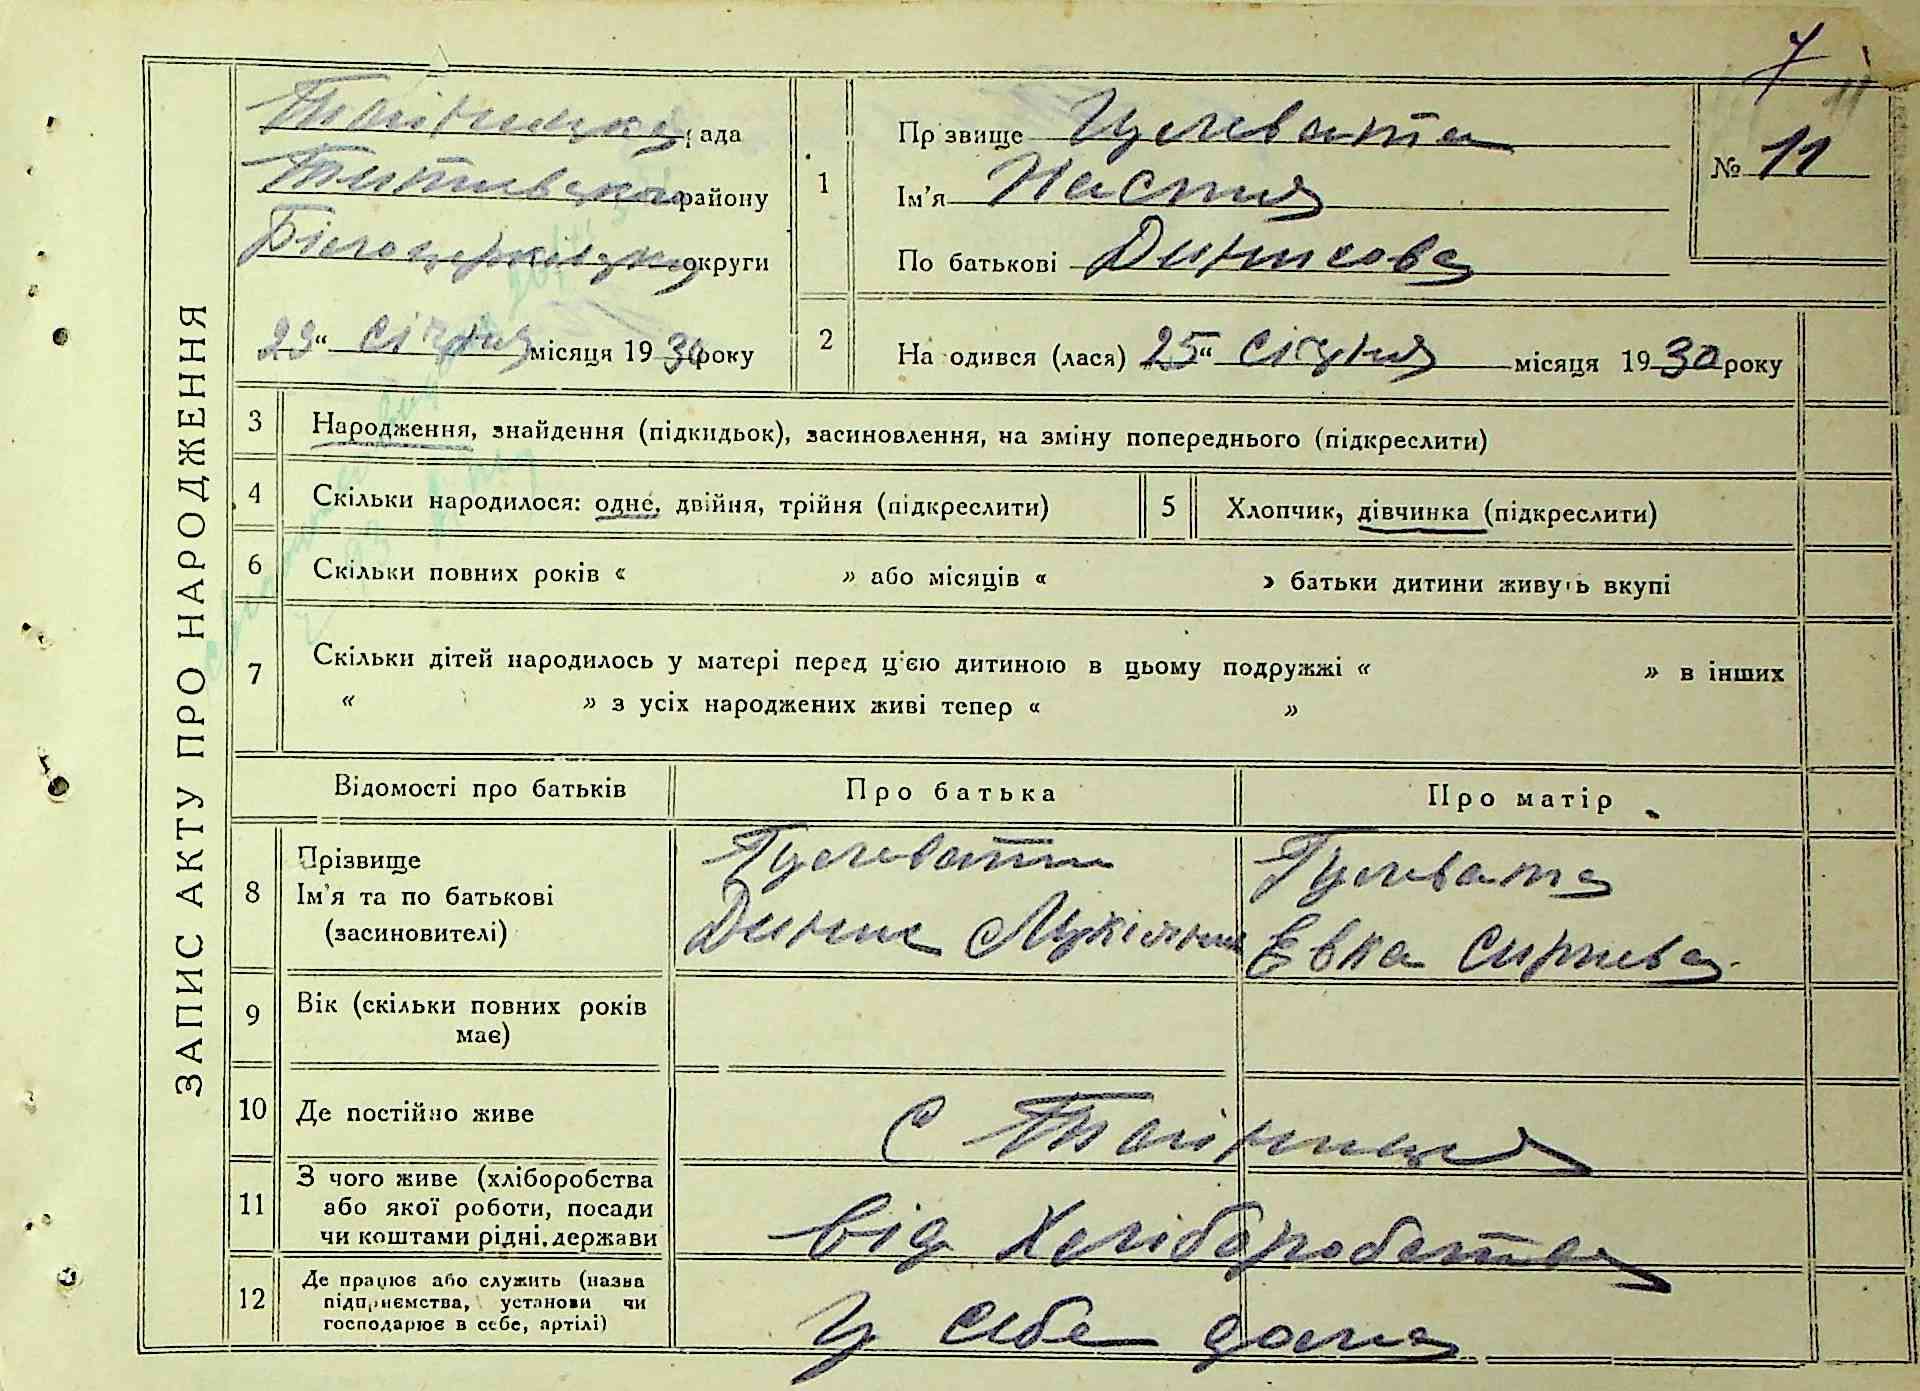 7
ЗАПИС АКТУ ПРО НАРОДЖЕННЯ
рада
району
Білоцерківської округи
29 " січня місяця 1930 року
1
Прізвище
Ім'я Настя
По батькові Динисова
№ 11
2
Народився (лася) 25 " січня місяця 1930 року
3
Народження, знайдення (підкидьок), засиновлення, на зміну попереднього (підкреслити)
4
Скільки народилося: одне, двійня, трійня (підкреслити)
5
Хлопчик, дівчинка (підкреслити)
6
Скільки повних років « » або місяців « » батьки дитини живуть вкупі
7
Скільки дітей народилось у матері перед цією дитиною в цьому подружжі « » в інших
« » з усіх народжених живі тепер « »
Відомості про батьків
Про батька
Про матір
8
Прізвище
Ім'я та по батькові
(засиновителі)
Динис
Евка
9
Вік (скільки повних років
має)
10
Де постійно живе
С
11
З чого живе (хліборобства
або якої роботи, посади
чи коштами рідні, держави
від Хліборобства
12
Де працює або служить (назва
підприємства, установи чи
господарює в себе, артілі)
У себе дома